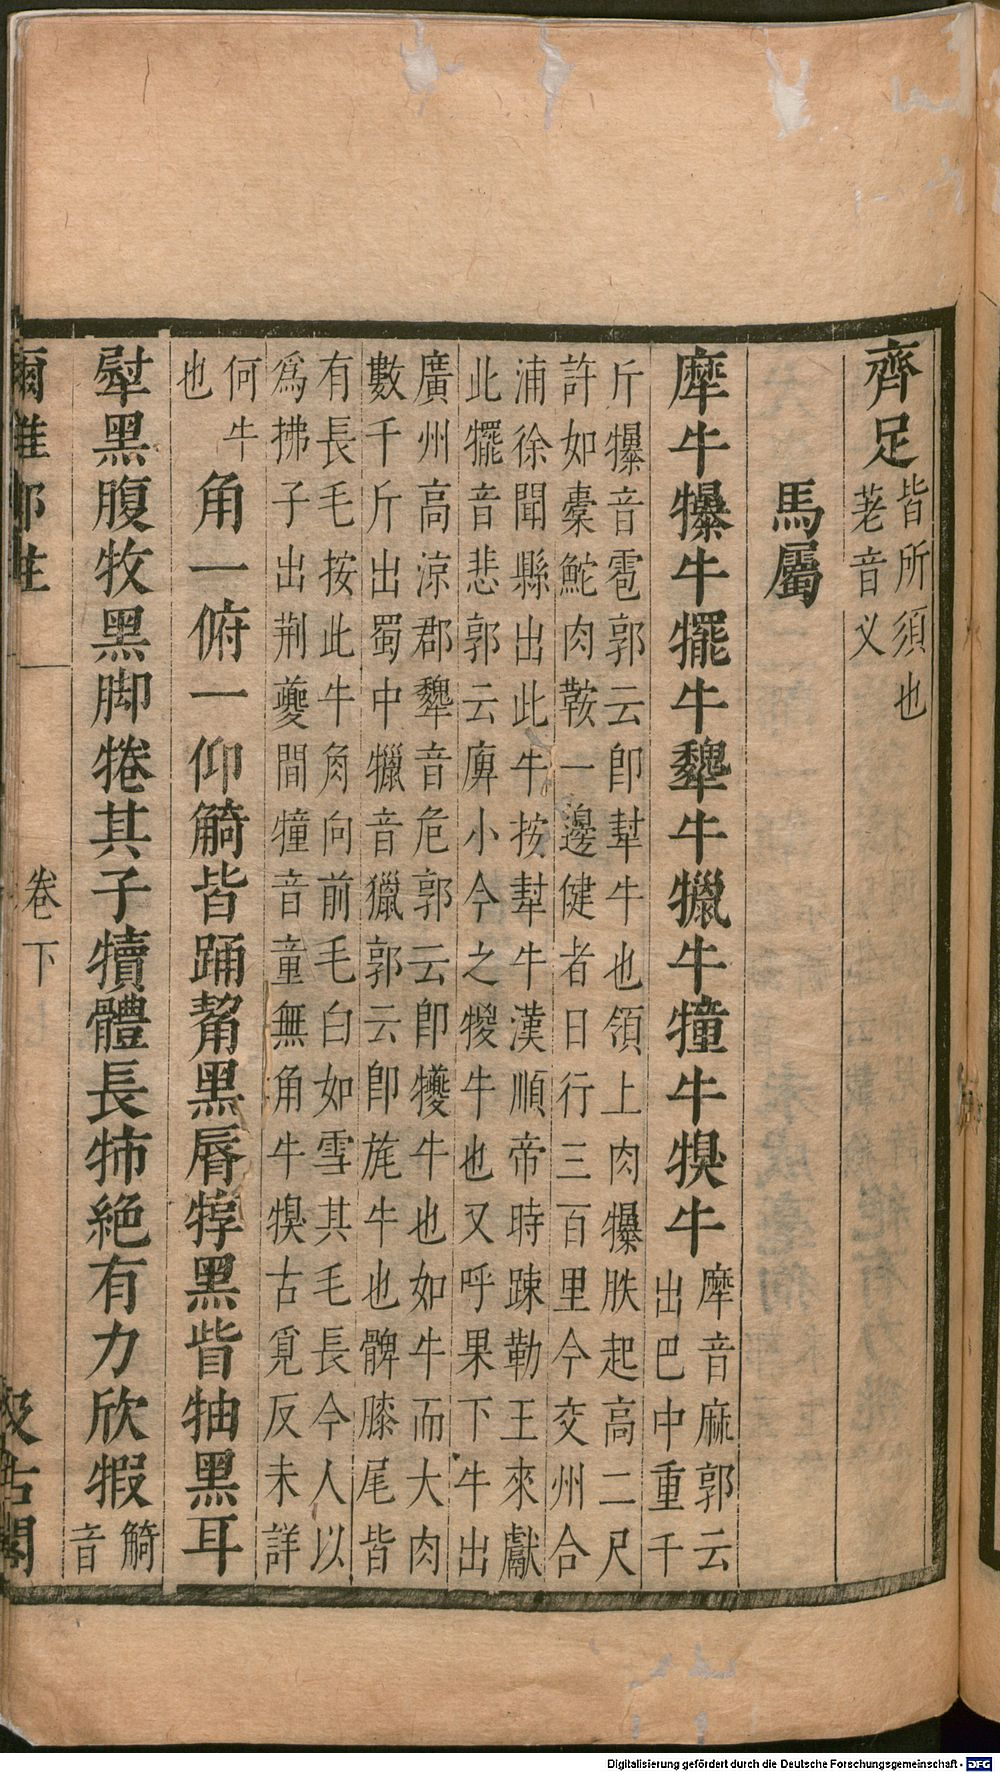 齊足皆所須也
荖音义
馬屬
犘牛犦牛犤牛犩牛犣牛犝牛犑牛犘音麻郭云
出巴中重千
斤犦音雹郭云即犎牛也領上肉犦胅起高二尺
許如橐鮀肉鞍一邊健者日行三百里今交州合
浦徐聞縣出此牛按犎牛漢順帝時踈勒王來獻
此犤音悲郭云庳小今之㹎牛也又呼果下牛出
廣州高涼郡犩音危郭云即犪牛也如牛而大肉
數千斤出蜀中犣音獵郭云即旄牛也髀膝尾皆
有長毛按此牛角向前毛白如雪其毛長今人以
為拂子出荆夔間犝音童無角牛犑古覓反未詳
何牛
也
角一俯一仰觭皆踊觢黑脣犉黑眥牰黑耳
犚黑腹牧黑脚犈其子犢體長㸬絕有力欣犌觭
音
爾雅郭註
卷下
汲古閣
Digitalisierung gefördert durch die Deutsche Forschungsgemeinschaft - DFG